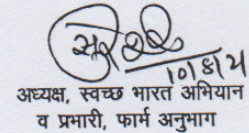 10/8/21
अध्यक्ष, स्वच्छ भारत अभियान
व प्रभारी, फार्म अनुभाग